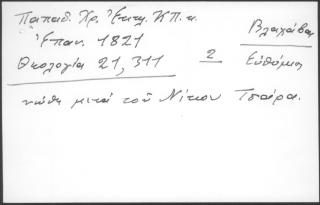 Παπαδ. Χρ. Ἐκκλ. Κ.Π. κ.
Ἐπαν. 1821
Βλαχάβας
Θεολογία 21, 311 2 Εὐθύμιος
μετά τοῦ Νίκου Τσάρα.